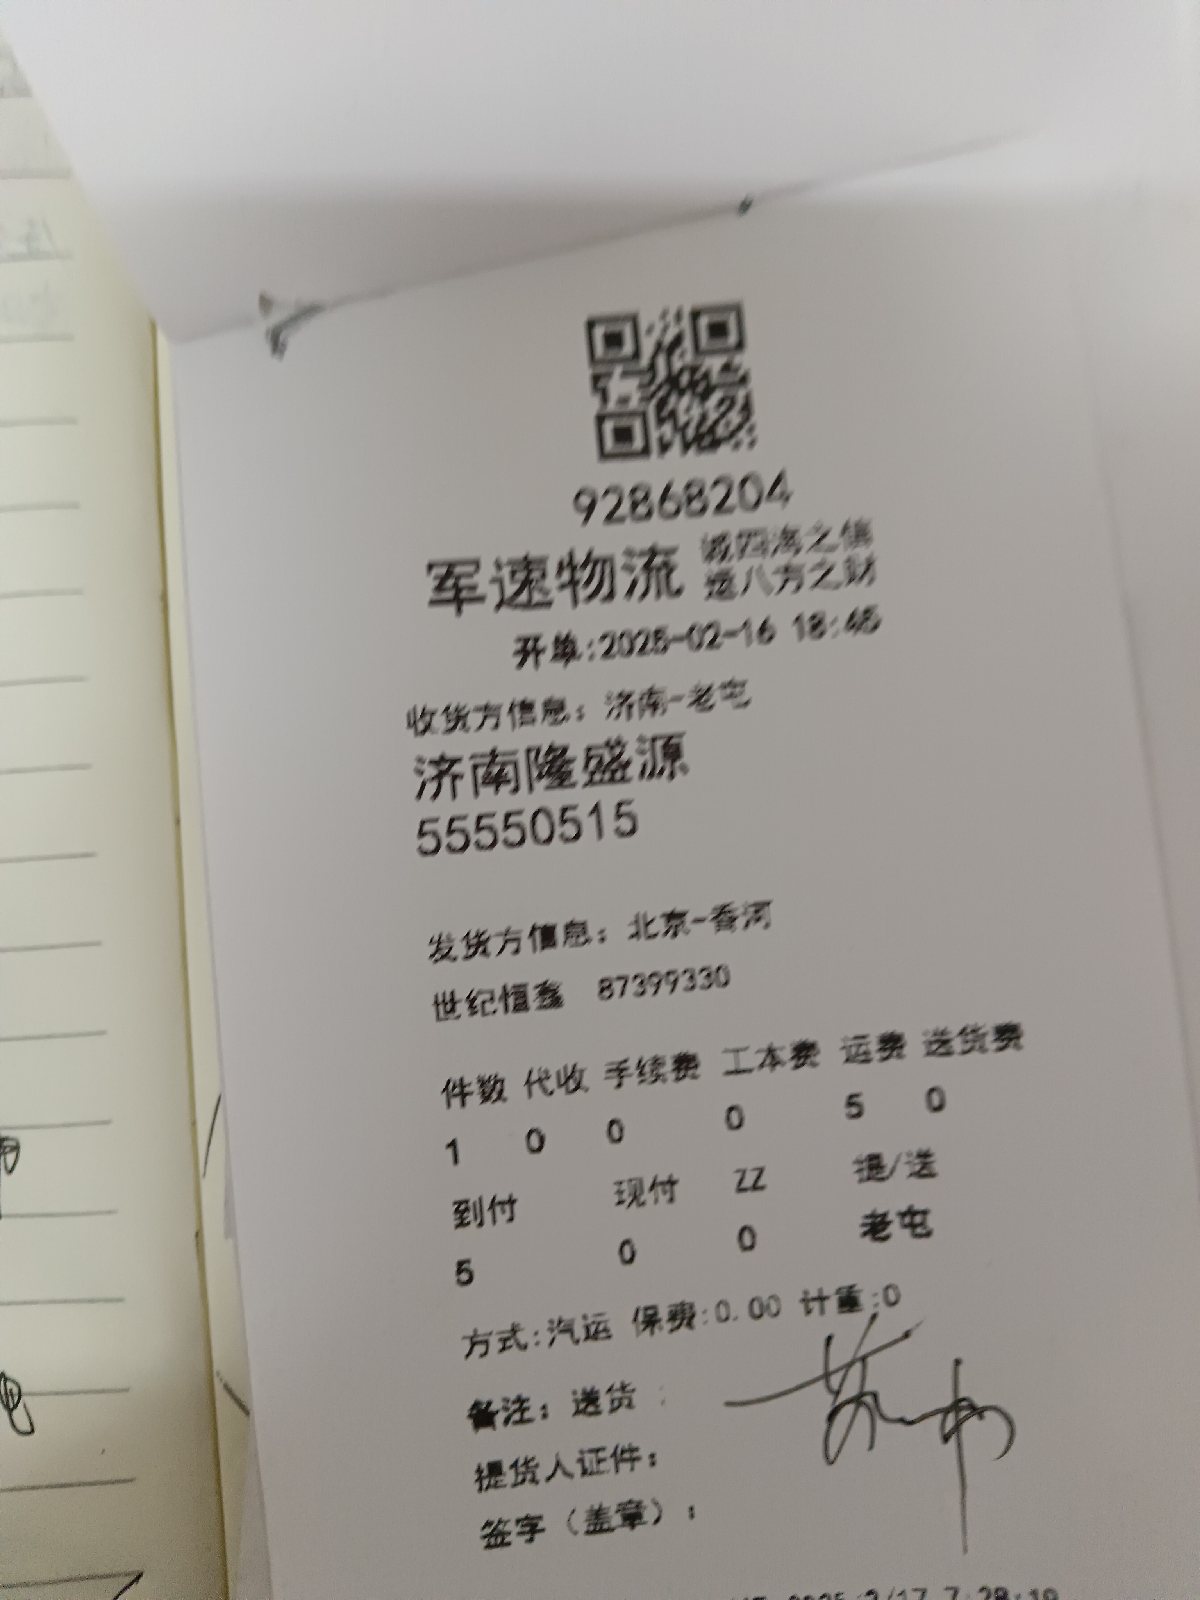 92868204
军速物流 诚四海之信
送八方之财
开单:2025-02-16 18:45
收货方信息：济南-老屯
济南隆盛源
55550515
发货方信息：北京-香河
世纪恒鑫 87399330
件数 代收 手续费 工本费 运费 送货费
1 0 0 0 5 0
到付 现付 ZZ 提/送
5 0 0 老屯
方式:汽运 保费:0.00 计重:0
备注：送货 :
提货人证件：
签字（盖章）：
2025/2/17 7:28:19